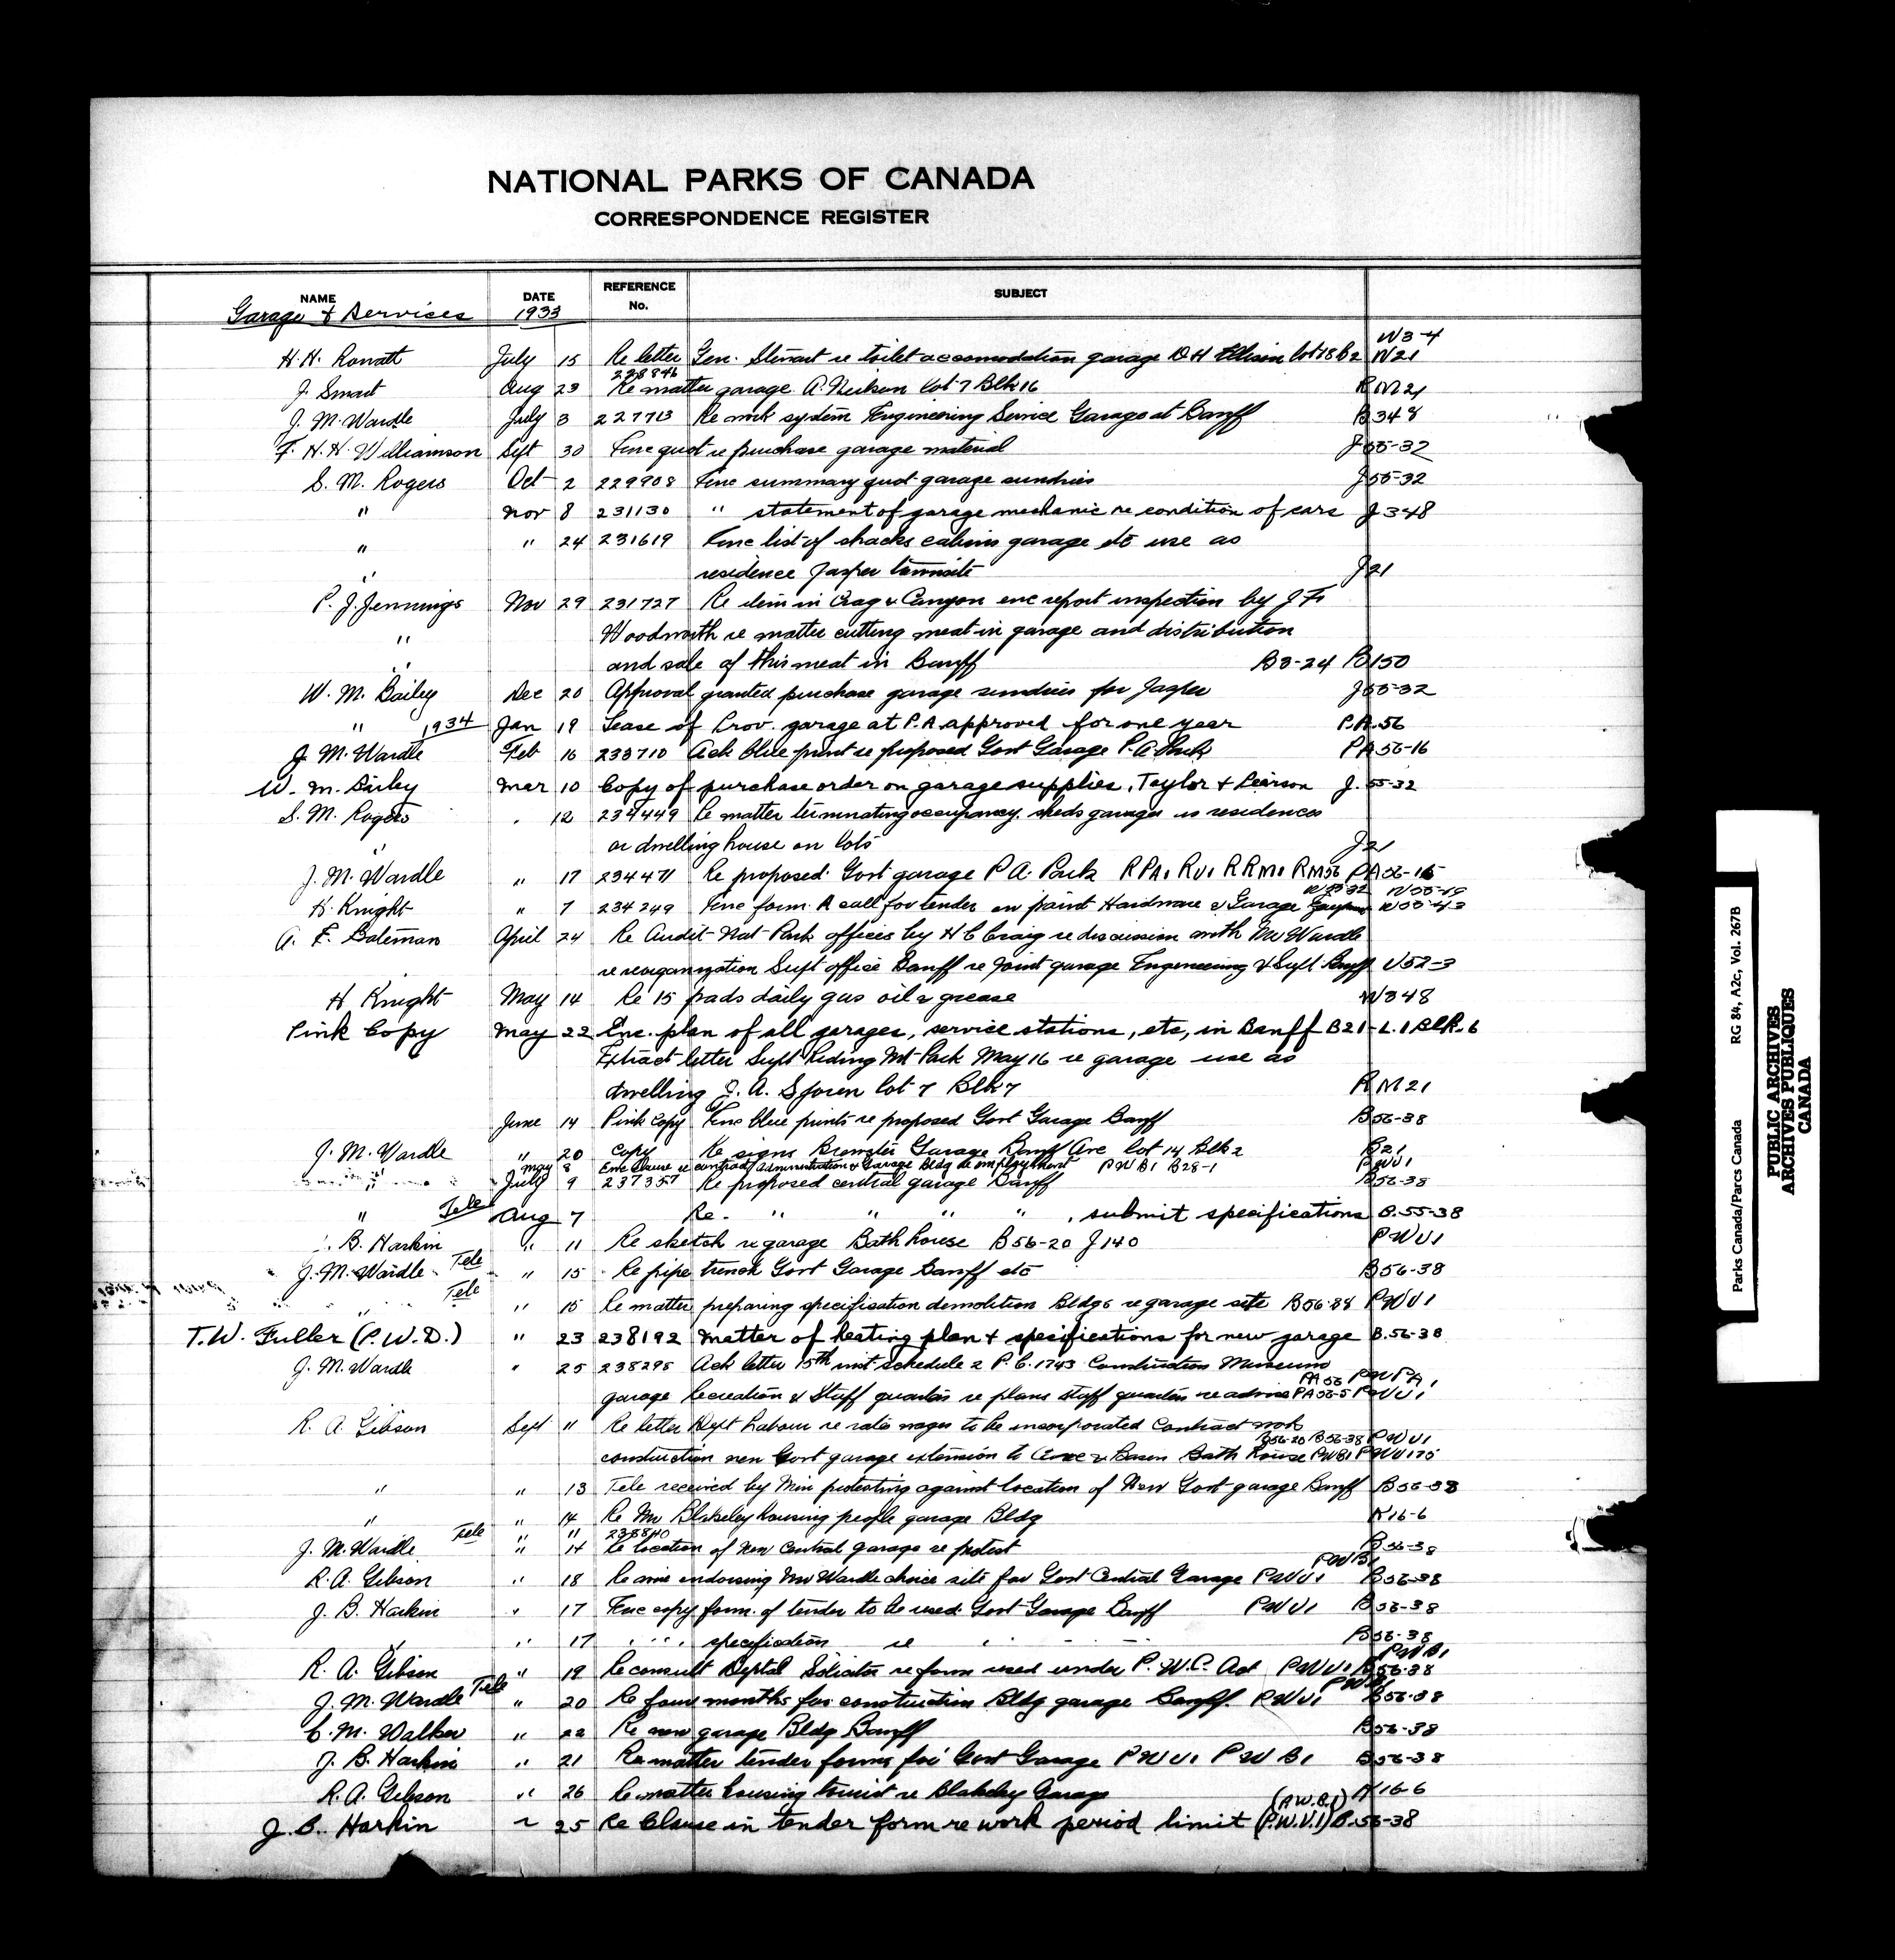 NATIONAL PARKS OF CANADA
CORRESPONDENCE REGISTER
NAME DATE REFERENCE No. SUBJECT
Garage & Services 1933
W3-4
H.H. Rowatt July 15 Re letter Gen. Stewart re toilet accomodation garage D H Ellison lot 18 B2 W21
228846
J. Smart Aug 23 Re matter garage A. Neilson lot 7 Blk 16 RM21
J. M. Wardle July 3 227713 Re work system Engineering Service Garage at Banff B348
F. H. H. Williamson Sept 30 Enc quot re purchase garage material J55-32
S. M. Rogers Oct 2 229908 Enc summary quot garage sundries J55-32
" Nov 8 231130 " statement of garage mechanic re condition of cars J348
" " 24 231619 Enc list of shacks cabins garage etc use as
" residence Jasper townsite J21
P. J. Jennings Nov 29 231727 Re item in Crag & Canyon enc report inspection by J F
" Woodworth re matter cutting meat in garage and distribution
" and sale of this meat in Banff B3-24 B150
W. M. Bailey Dec 20 Approval granted purchase garage sundries for Jasper J55-32
" 1934 Jan 19 Lease of Prov. garage at P.A. approved for one year P.A. 56
J. M. Wardle Feb 16 233710 Ack blue print re proposed Govt Garage P.A. Park PA 56-16
W. M. Bailey Mar 10 Copy of purchase order on garage supplies, Taylor & Pearson J. 55-32
S. M. Rogers . 12 234449 Re matter terminating occupancy sheds garages as residences
" or dwelling house on lots J21
J. M. Wardle " 17 234471 Re proposed Govt garage P A. Park RPA1 RV1 RRM1 RM56 PA56-16
H. Knight " 7 234249 Enc form A call for tender on paint Hardware & Garage W55-43
A. F. Bateman April 24 Re Audit Nat Park offices by H C Craig re discussion with Mr Wardle
re reorganization Supt office Banff re joint garage Engineering & Supt Banff U52-3
H Knight May 14 Re 15 pads daily gas oil & grease W348
Pink Copy May 22 Enc. plan of all garages, service stations, etc, in Banff B21-L.1 Blk.6
Extract letter Supt Riding Mt Park May 16 re garage use as
dwelling J. A. lot 7 Blk 7 RM21
June 14 Pink copy Enc blue prints re proposed Govt Garage Banff B56-38
J. M. Wardle " 20 copy Re signs Brewster Garage Banff Ave lot 14 Blk 2 B21
May 8 Enc clause re contract administration & Garage Bldg re employment PWB1 B28-1 PWU1
" July 9 237357 Re proposed central garage Banff B56-38
" Tele Aug 7 Re- " " " " , submit specifications B.55-38
J. B. Harkin " 11 Re sketch re garage Bath house B56-20 J140 PWU1
J. M. Wardle Tele " 15 Re pipe trench Govt Garage Banff etc B56-38
" Tele " 15 Re matter preparing specification demolition Bldgs re garage site B56-84 PWU1
T. W. Fuller (P.W.D.) " 23 238192 matter of heating plan & specifications for new garage B.56-38
J. M. Wardle " 25 238295 Ack letter 15th unit schedule 2 P.C. 1743 Construction Museum
PA56 PWPA1
garage Recreation & Staff quarters re plans staff quarters re advise PA56-5 PWU1
R. A. Gibson Sept 11 Re letter Dept Labour re rates wages to be incorporated Contract work
B56-20 B56-38 PWU1
construction new Govt garage extension to Cave & Basin Bath house PWB1 PWU175
" " 13 Tele received by Min protesting against location of New Govt garage Banff B56-38
" " 14 Re Mr Blakeley housing people garage Bldg K16-6
" 11 238840
J. M. Wardle Tele " 14 Re location of New Central garage re protest B56-38
PWB1
R. A. Gibson " 18 Re endorsing Mr Wardle choice site for Govt Central Garage PWU1 B56-38
J. B. Harkin " 17 Enc copy form of tender to be used Govt Garage Banff PWU1 B56-38
" " 17 " " " specification re " - - B56-38
PWB1
R. A. Gibson " 19 Re consult Deptal Solicitor re form used under P.W.C. Act PWU1 B56-38
PWB1
J. M. Wardle Tele " 20 Re four months for construction Bldg garage Banff. PWU1 B56-38
C. M. Walker " 22 Re new garage Bldg Banff B56-38
J. B. Harkin " 21 Re matter tender forms for Govt Garage PWU1 PWB1 B56-38
R. A. Gibson " 26 Re matter housing tourist re Blakeley Garage K16-6
(P.W.B.1)
J. B. Harkin " 25 Re Clause in tender form re work period limit (P.W.U.1) B.56-38
Parks Canada/Parcs Canada RG 84, A2c, Vol. 267B
PUBLIC ARCHIVES
ARCHIVES PUBLIQUES
CANADA